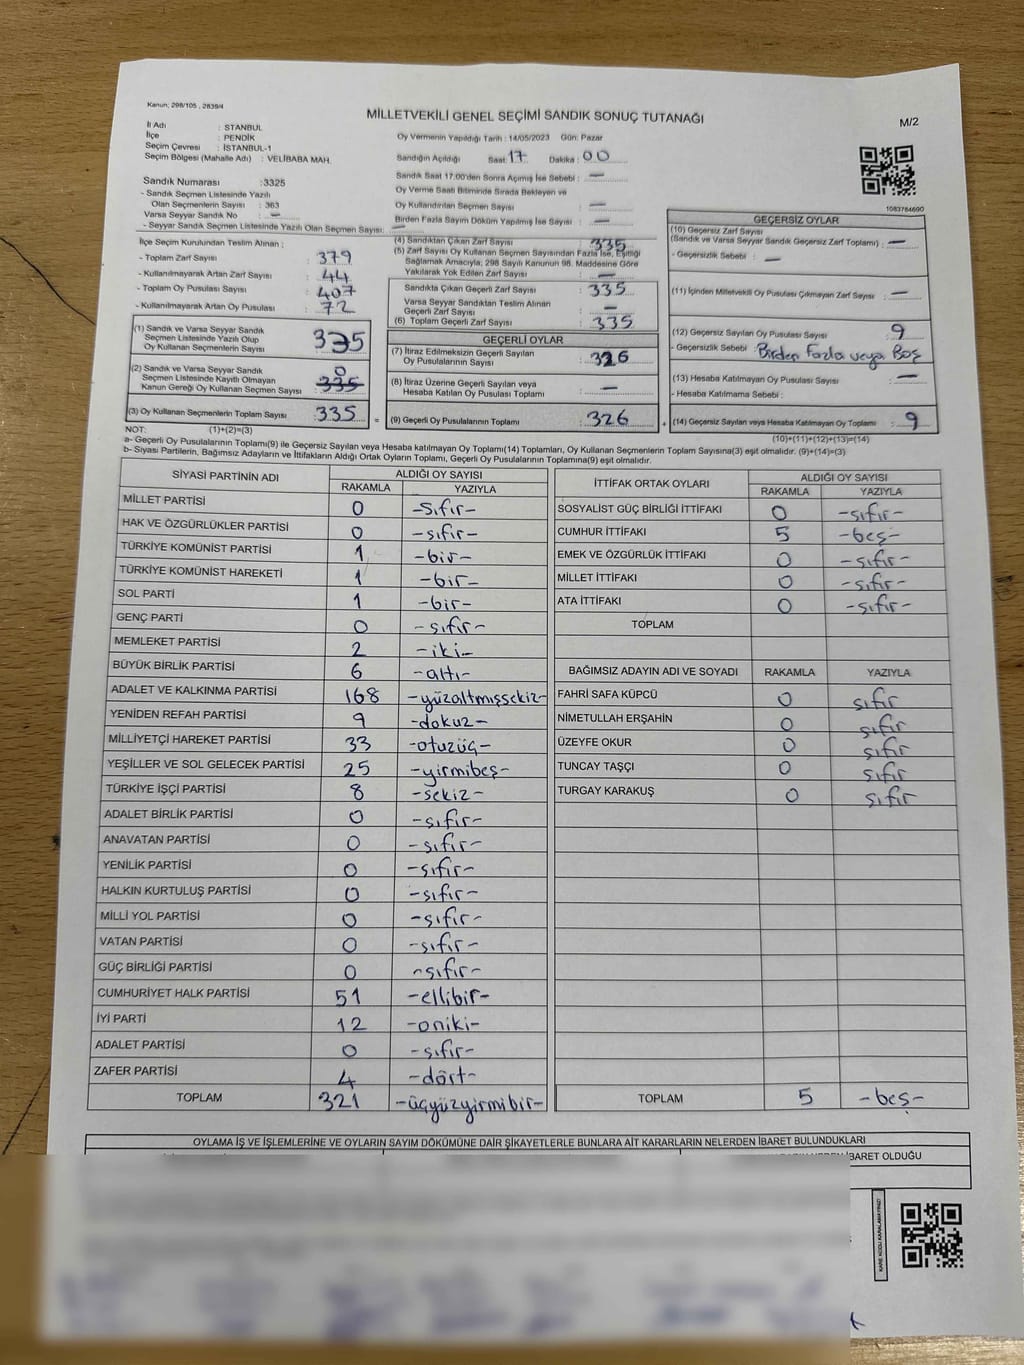 Kanun; 298/105 , 2839/4
MİLLETVEKİLİ GENEL SEÇİMİ SANDIK SONUÇ TUTANAĞI
M/2
İl Adı : STANBUL
İlçe : PENDİK
Seçim Çevresi : İSTANBUL-1
Seçim Bölgesi (Mahalle Adı) : VELİBABA MAH.
Sandık Numarası :3325
- Sandık Seçmen Listesinde Yazılı
Olan Seçmenlerin Sayısı : 363
Varsa Seyyar Sandık No : —
- Seyyar Sandık Seçmen Listesinde Yazılı Olan Seçmen Sayısı: —
Oy Vermenin Yapıldığı Tarih : 14/05/2023 Gün: Pazar
Sandığın Açıldığı Saat: 17 Dakika : 00
Sandık Saat 17:00'den Sonra Açımış İse Sebebi : —
Oy Verme Saati Bitiminde Sırada Bekleyen ve
Oy Kullandırılan Seçmen Sayısı : —
Birden Fazla Sayım Döküm Yapılmış İse Sayısı : —
1083784690
İlçe Seçim Kurulundan Teslim Alınan ;
- Toplam Zarf Sayısı : 379
- Kullanılmayarak Artan Zarf Sayısı : 44
- Toplam Oy Pusulası Sayısı : 407
- Kullanılmayarak Artan Oy Pusulası : 72
(1) Sandık ve Varsa Seyyar Sandık
Seçmen Listesinde Yazılı Olup
Oy Kullanan Seçmenlerin Sayısı 335
(2) Sandık ve Varsa Seyyar Sandık
Seçmen Listesinde Kayıtlı Olmayan
Kanun Gereği Oy Kullanan Seçmen Sayısı 335 0
(3) Oy Kullanan Seçmenlerin Toplam Sayısı 335 =
(4) Sandıktan Çıkan Zarf Sayısı : 335
(5) Zarf Sayısı Oy Kullanan Seçmen Sayısından Fazla İse, Eşitliği
Sağlamak Amacıyla; 298 Sayılı Kanunun 98. Maddesine Göre
Yakılarak Yok Edilen Zarf Sayısı : —
Sandıkta Çıkan Geçerli Zarf Sayısı : 335
Varsa Seyyar Sandıktan Teslim Alınan
Geçerli Zarf Sayısı : —
(6) Toplam Geçerli Zarf Sayısı : 335
GEÇERLİ OYLAR
(7) İtiraz Edilmeksizin Geçerli Sayılan
Oy Pusulalarının Sayısı : 326
(8) İtiraz Üzerine Geçerli Sayılan veya
Hesaba Katılan Oy Pusulası Toplamı : —
(9) Geçerli Oy Pusulalarının Toplamı : 326 +
GEÇERSİZ OYLAR
(10) Geçersiz Zarf Sayısı
(Sandık ve Varsa Seyyar Sandık Geçersiz Zarf Toplamı) : —
- Geçersizlik Sebebi : —
(11) İçinden Milletvekili Oy Pusulası Çıkmayan Zarf Sayısı : —
(12) Geçersiz Sayılan Oy Pusulası Sayısı : 9
- Geçersizlik Sebebi : Birden Fazla veya Boş
(13) Hesaba Katılmayan Oy Pusulası Sayısı : —
- Hesaba Katılmama Sebebi :
(14) Geçersiz Sayılan veya Hesaba Katılmayan Oy Toplamı : 9
NOT: (1)+(2)=(3)
(10)+(11)+(12)+(13)=(14)
a- Geçerli Oy Pusulalarının Toplamı(9) ile Geçersiz Sayılan veya Hesaba katılmayan Oy Toplamı(14) Toplamları, Oy Kullanan Seçmenlerin Toplam Sayısına(3) eşit olmalıdır. (9)+(14)=(3)
b- Siyasi Partilerin, Bağımsız Adayların ve İttifakların Aldığı Ortak Oyların Toplamı, Geçerli Oy Pusulalarının Toplamına(9) eşit olmalıdır.
SİYASİ PARTİNİN ADI ALDIĞI OY SAYISI
RAKAMLA YAZIYLA
MİLLET PARTİSİ 0 -sıfır-
HAK VE ÖZGÜRLÜKLER PARTİSİ 0 -sıfır-
TÜRKİYE KOMÜNİST PARTİSİ 1 -bir-
TÜRKİYE KOMÜNİST HAREKETİ 1 -bir-
SOL PARTİ 1 -bir-
GENÇ PARTİ 0 -sıfır-
MEMLEKET PARTİSİ 2 -iki-
BÜYÜK BİRLİK PARTİSİ 6 -altı-
ADALET VE KALKINMA PARTİSİ 168 -yüzaltmışsekiz-
YENİDEN REFAH PARTİSİ 9 -dokuz-
MİLLİYETÇİ HAREKET PARTİSİ 33 -otuzüç-
YEŞİLLER VE SOL GELECEK PARTİSİ 25 -yirmibeş-
TÜRKİYE İŞÇİ PARTİSİ 8 -sekiz-
ADALET BİRLİK PARTİSİ 0 -sıfır-
ANAVATAN PARTİSİ 0 -sıfır-
YENİLİK PARTİSİ 0 -sıfır-
HALKIN KURTULUŞ PARTİSİ 0 -sıfır-
MİLLİ YOL PARTİSİ 0 -sıfır-
VATAN PARTİSİ 0 -sıfır-
GÜÇ BİRLİĞİ PARTİSİ 0 -sıfır-
CUMHURİYET HALK PARTİSİ 51 -ellibir-
İYİ PARTİ 12 -oniki-
ADALET PARTİSİ 0 -sıfır-
ZAFER PARTİSİ 4 -dört-
TOPLAM 321 -üçyüzyirmibir-
İTTİFAK ORTAK OYLARI ALDIĞI OY SAYISI
RAKAMLA YAZIYLA
SOSYALİST GÜÇ BİRLİĞİ İTTİFAKI 0 -sıfır-
CUMHUR İTTİFAKI 5 -beş-
EMEK VE ÖZGÜRLÜK İTTİFAKI 0 -sıfır-
MİLLET İTTİFAKI 0 -sıfır-
ATA İTTİFAKI 0 -sıfır-
TOPLAM
BAĞIMSIZ ADAYIN ADI VE SOYADI RAKAMLA YAZIYLA
FAHRİ SAFA KÜPCÜ 0 sıfır
NİMETULLAH ERŞAHİN 0 sıfır
ÜZEYFE OKUR 0 sıfır
TUNCAY TAŞÇI 0 sıfır
TURGAY KARAKUŞ 0 sıfır
TOPLAM 5 -beş-
OYLAMA İŞ VE İŞLEMLERİNE VE OYLARIN SAYIM DÖKÜMÜNE DAİR ŞİKAYETLERLE BUNLARA AİT KARARLARIN NELERDEN İBARET BULUNDUKLARI
İBARET OLDUĞU
KARE KODU KARALAMAYINIZ!